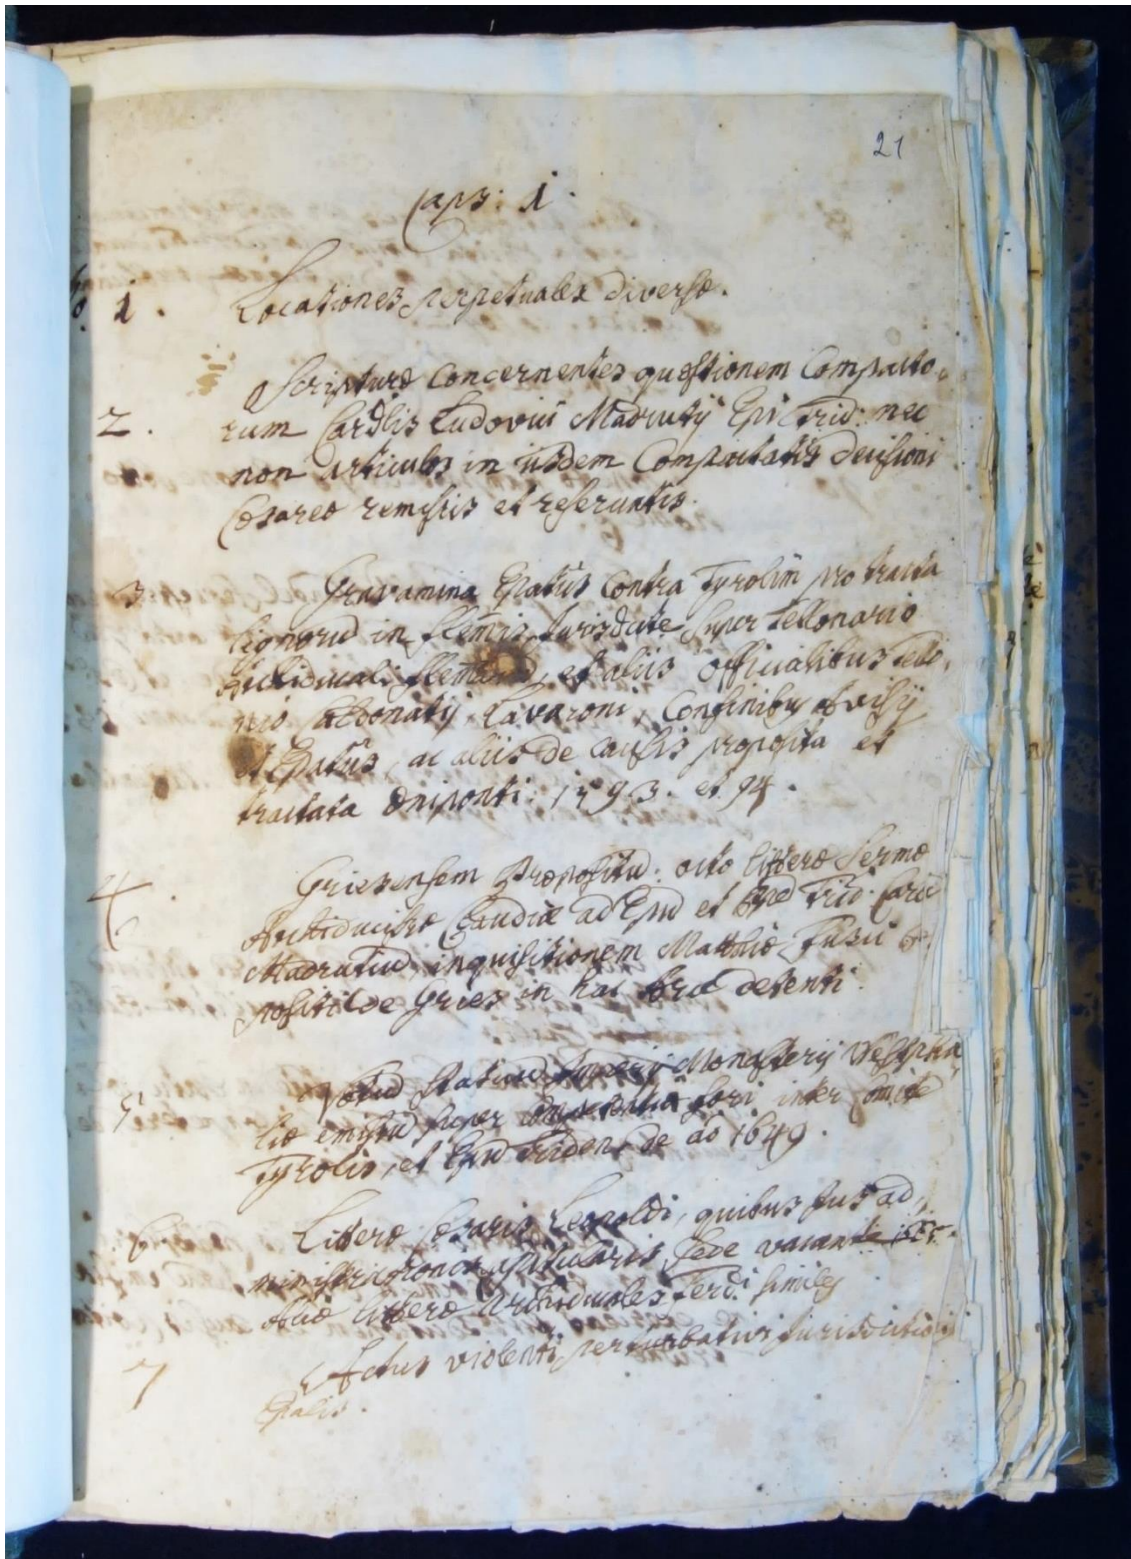 21
Caps: 1.
No. 1. Locationes perpetuales diversæ.
Scripturæ concernentes quæstionem Compacto-
2. rum Cardlis Ludovici Madrutij Epi Trid: nec
non articulos in iisdem Compactatis decisioni
Cæsareæ remissis et reservatis.
3 Gravamina Epatus contra Tyrolim pro tracta
lignorum in Flemis, Jurisdicte super Tellonario
Archiducali et aliis officialibus telo-
nio Caldonatij, Lavaroni, Confinibus
et Epatus, ac aliis de causis proposita et
tractata Oeniponti. 1593. et 94.
4. Griesensem Præposit: octo litteræ Serme
Archiducisse Claudiæ ad Epum et Trid. Car:
Madrutium, inquisitionem Matthiæ
positi de Gries in hac detenti.
5 Votum Statuum Imperij Monasterij Westpha
liæ emissum super fori inter Comite
Tyrolis, et Epum Triden: de ao 1649.
6. Litteræ Cæsaris Leopoldi, quibus Jus ad-
ministrationis capitularis, Sede vacante
Aliæ litteræ Archiducales Ferdi. similes
7 Actus violenti, perturbativi Jurisdictionis
Epalis.